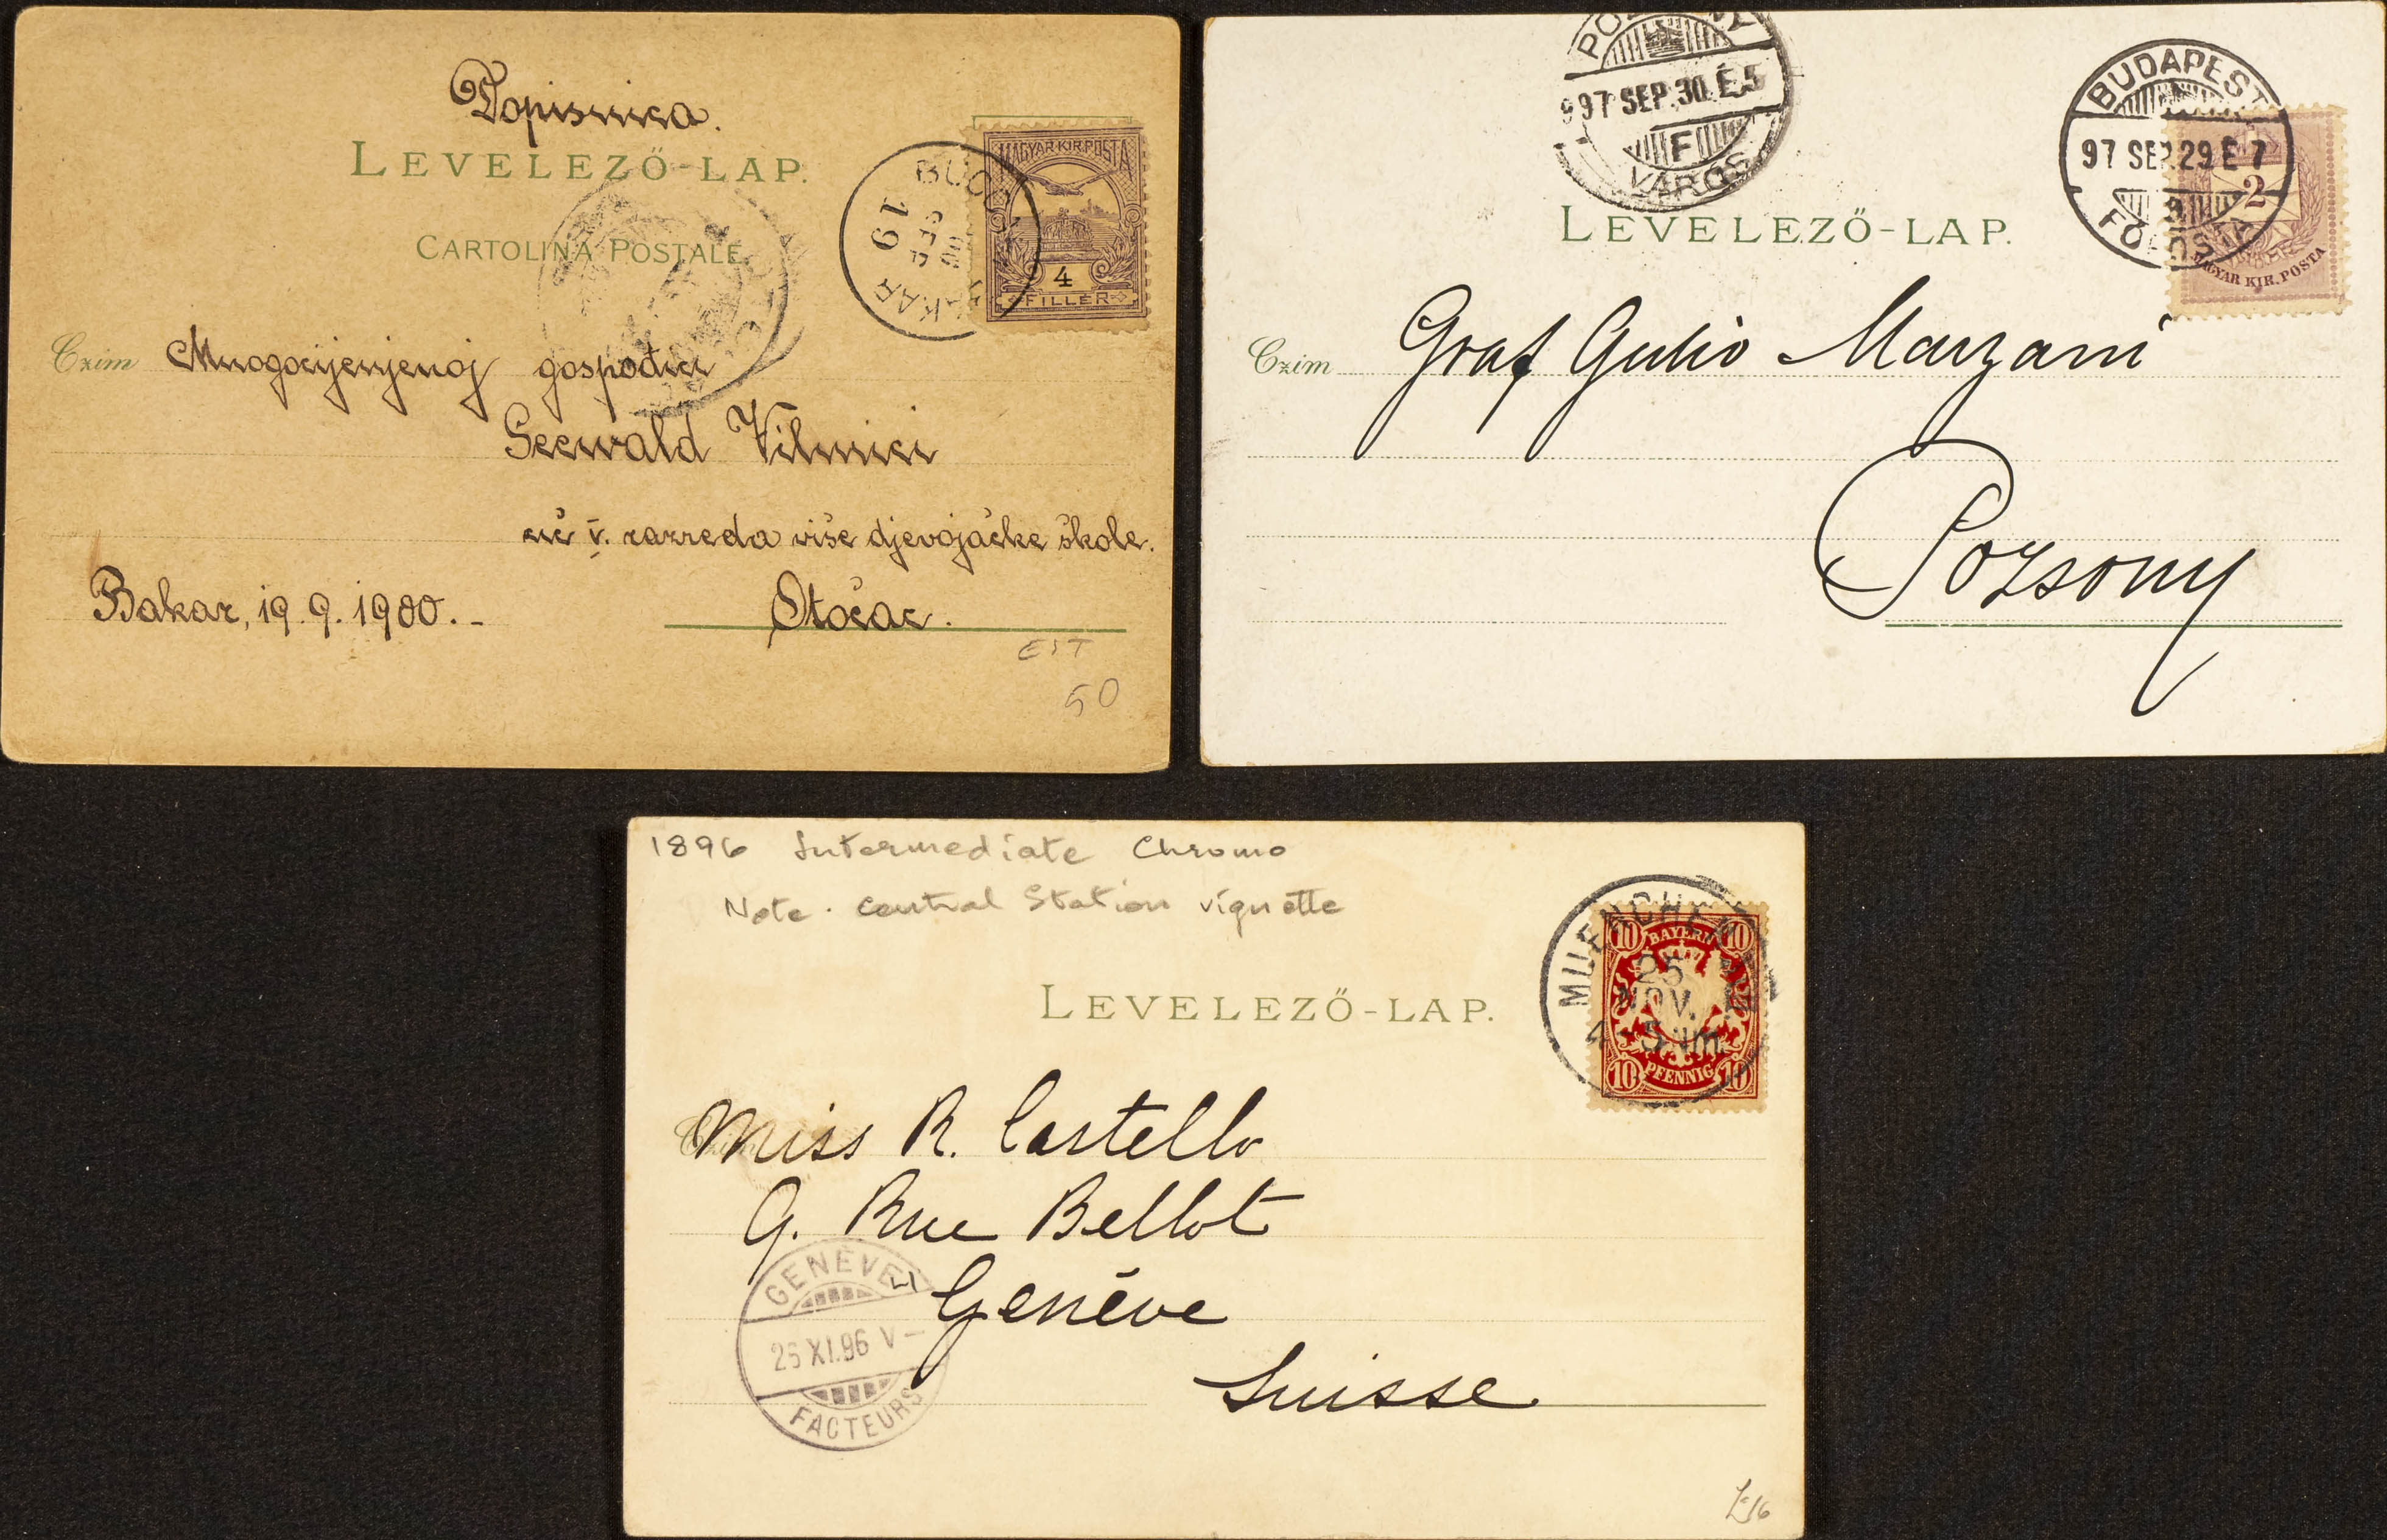 Dopisnica.
LEVELEZŐ-LAP.
CARTOLINA POSTALE
MAGYAR KIR. POSTA
4
FILLÉR
BUCCARI
19
SEP
00
BAKAR
Czim Mnogocijenjenoj gospođici
Seewald Vilmici
uč. V. razreda više djevojačke škole.
Bakar, 19. 9. 1900. -
Otočac.
EIT
50
POZSONY
997 SEP. 30. É. 5
F
VÁROS
BUDAPEST
97 SEP. 29 É 7
FŐPOSTA
2
MAGYAR KIR. POSTA
LEVELEZŐ-LAP.
Czim Graf Giulio Marzani
Pozsony
1896 Intermediate Chromo
Note. Central Station vignette
MUENCHEN
25
NOV.
4-5 Nm.
10 BAYERN 10
10 PFENNIG 10
LEVELEZŐ-LAP.
Czim
Miss R. Castello
9. Rue Bellot
Genève
Suisse
GENÈVE
26 XI.96 V-
FACTEURS
£16